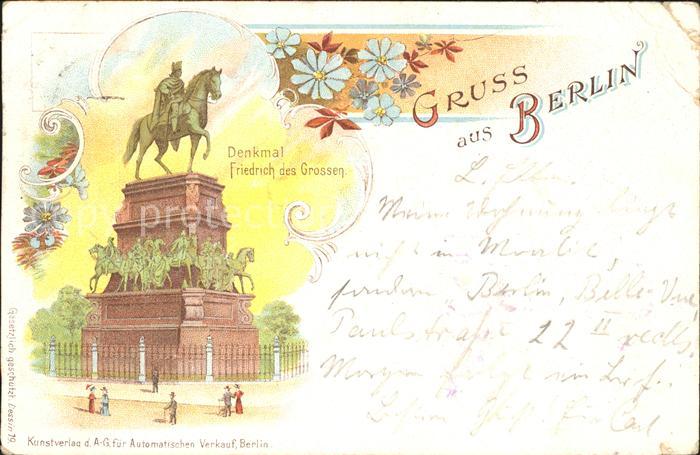 GRUSS
aus BERLIN
Denkmal
Friedrich des Grossen.
L. Eltern.
Meine Wohnung liegt
nicht in Moabit,
sondern, Berlin, Belle-
Paulstraße 22 II rechts.
Morgen folgt ein Brief.
Carl.
Gesetzlich geschützt Dessin 79.
Kunstverlag d. A-G. für Automatischen Verkauf, Berlin.
copy protection